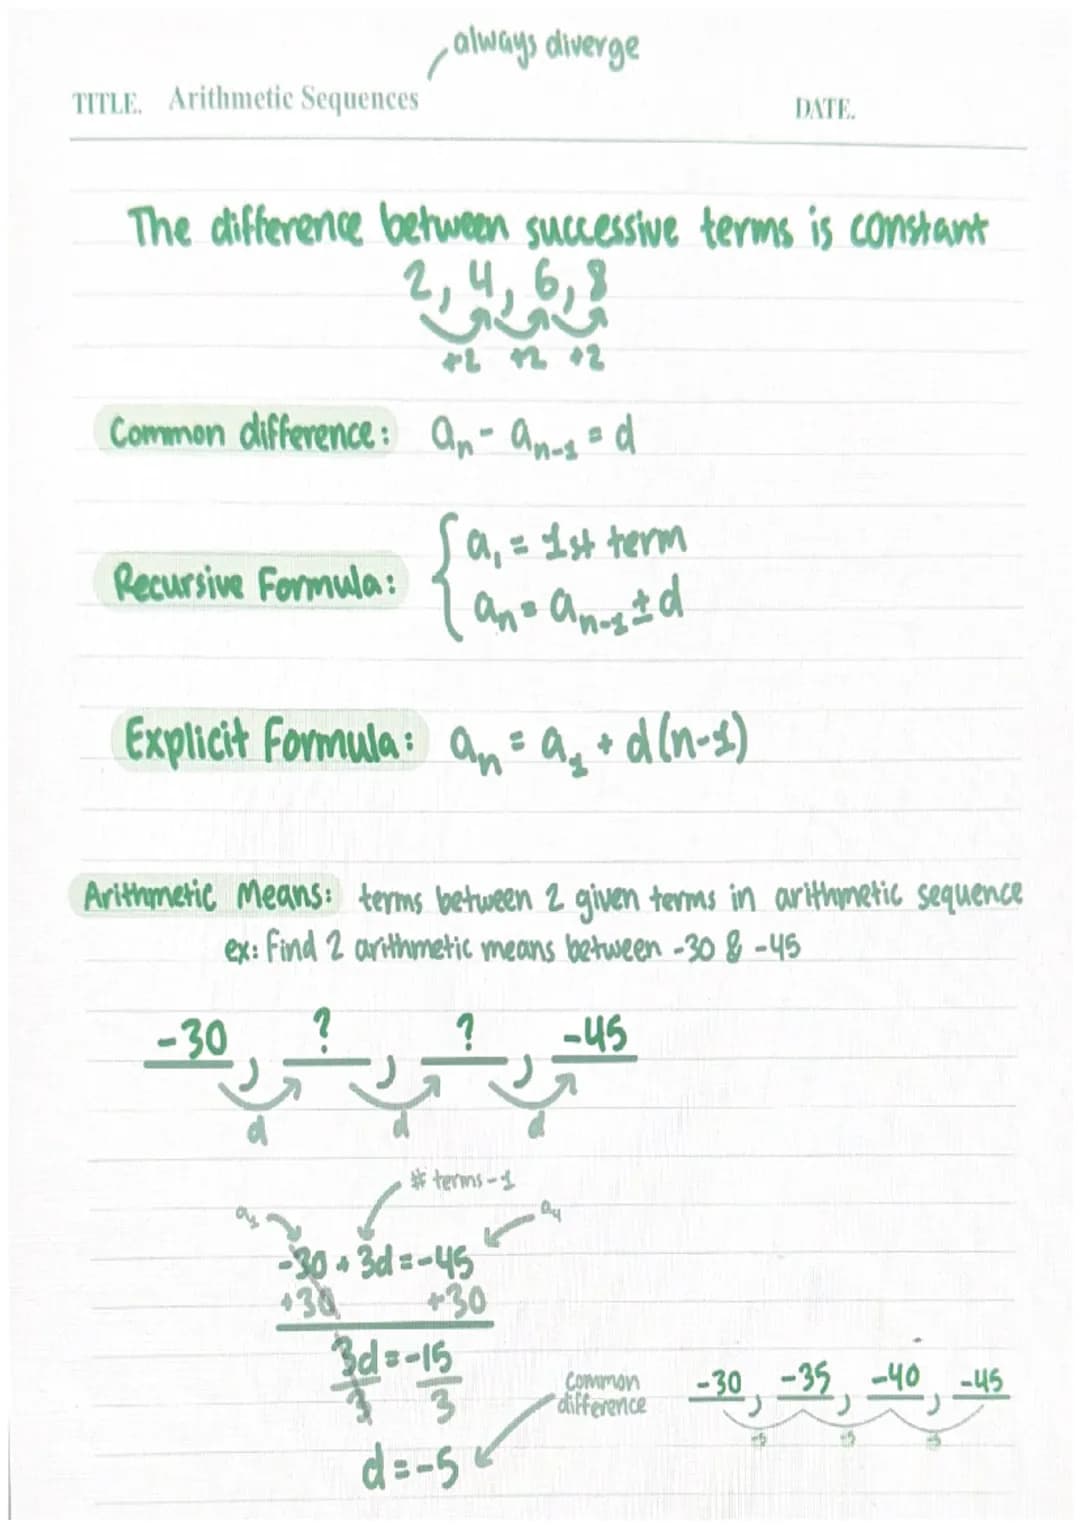 always diverge
TITLE. Arithmetic Sequences
DATE.
The difference between successive terms is constant
2, 4, 6, 8
+2 +2 +2
Common difference: aₙ - aₙ₋₁ = d
Recursive Formula: { a₁ = 1st term
aₙ = aₙ₋₁ ± d
Explicit Formula: aₙ = a₁ + d(n-1)
Arithmetic Means: terms between 2 given terms in arithmetic sequence
ex: Find 2 arithmetic means between -30 & -45
-30, ?, ?, -45
d d d
# terms-1
a₁ a₄
-30 + 3d = -45
+30 +30
3d = -15
3 3
common
difference
-30, -35, -40, -45
-5 -5 -5
d = -5